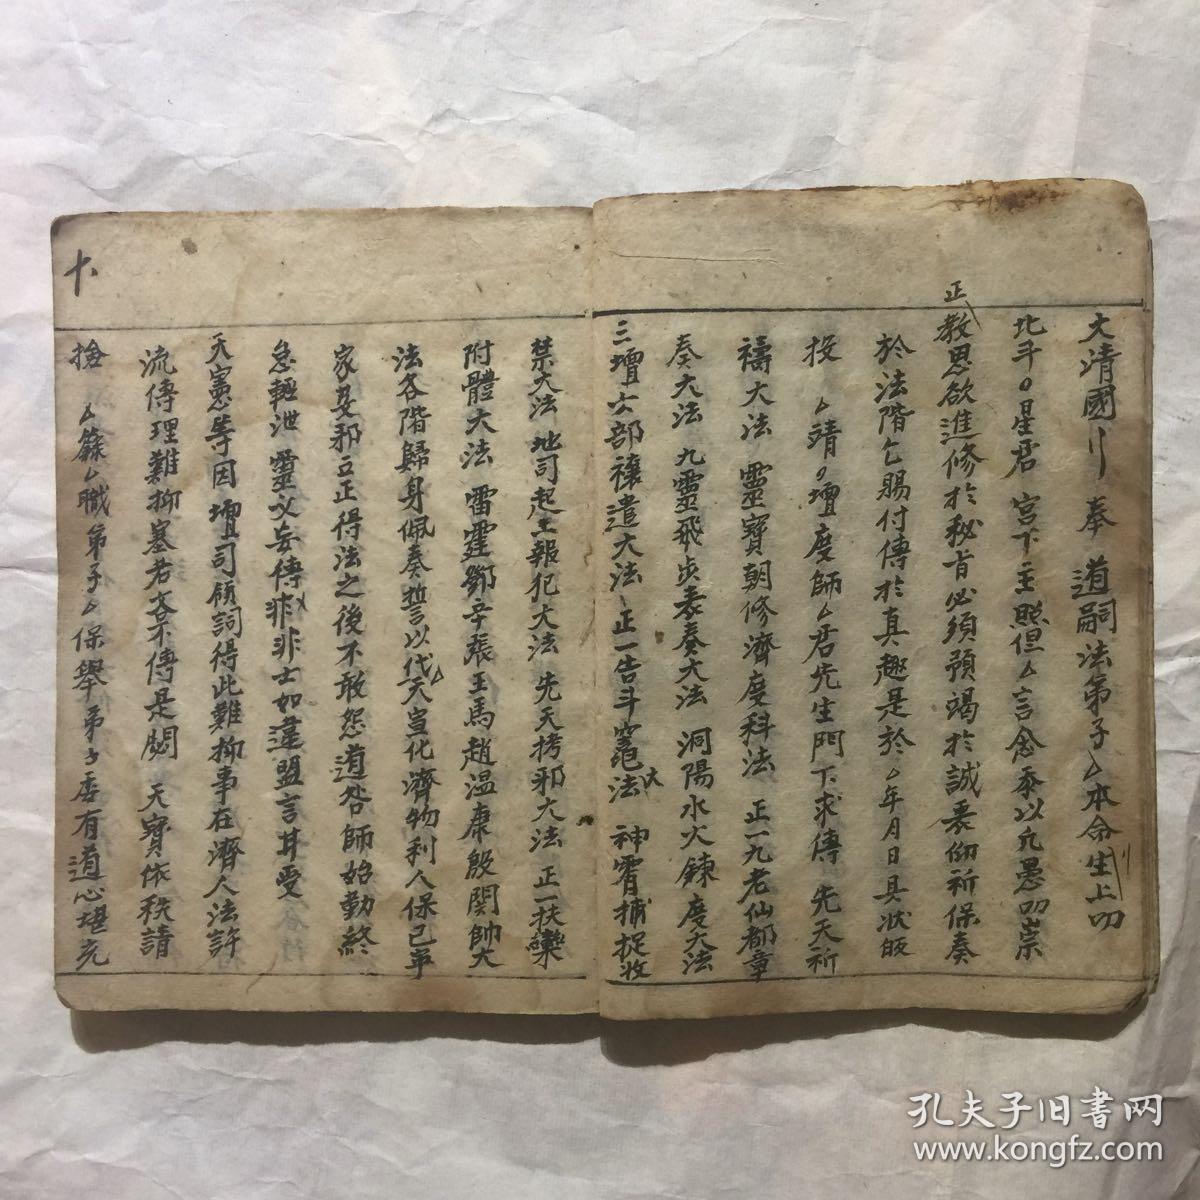 大清國〢奉 道嗣法弟子厶本命生上叩
北斗〇星君 宮下主照但厶言念泰以凡愚叨崇
正教思欲進修於秘旨必須預竭於誠衷仰祈保奏
於法階乞賜付傳於真趣是於厶年月日具狀皈
投 厶靖〇壇度師厶君先生門下求傳 先天祈
禱大法 靈寶朝修濟度科法 正一九老仙都章
奏大法 九靈飛步表奏大法 洞陽水火鍊度大法
三壇六部禳遣大法 正一告斗竈大法 神霄捕捉收
禁大法 地司起土報犯大法 先天拷邪大法 正一扶欒
附體大法 雷霆鄧辛張王馬趙溫康殷関帥大
法各階歸身佩奏誓以代厶天宣化濟物利人保己平
家
邪立正得法之後不敢怨道咎師始勤終
怠輕泄靈文妄傳非士如違盟言甘受
天憲等因壇司傾詞得此難抑事在濟人法許
流傳理難抑塞若
不傳是閟 天寶依秩請
撿 厶籙厶職弟子厶保舉弟子委有道心堪充
十、
孔夫子旧书网
www.kongfz.com